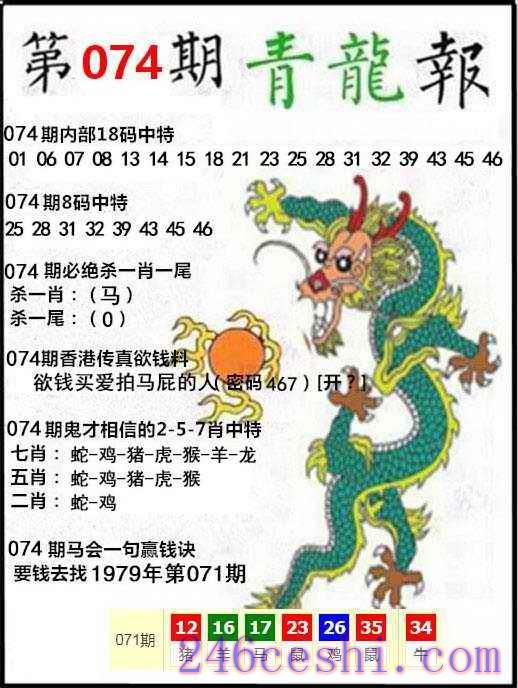 第074期 青龍報
074期内部18码中特
01 06 07 08 13 14 15 18 21 23 25 28 31 32 39 43 45 46
074期8码中特
25 28 31 32 39 43 45 46
074期必绝杀一肖一尾
杀一肖：（马）
杀一尾：（0）
074期香港传真欲钱料
欲钱买爱拍马屁的人(密码467）[开？]
074期鬼才相信的2-5-7肖中特
七肖：蛇-鸡-猪-虎-猴-羊-龙
五肖：蛇-鸡-猪-虎-猴
二肖：蛇-鸡
074期马会一句赢钱诀
要钱去找1979年第071期
071期 12 16 17 23 26 35 34
猪 羊 马 鼠 鸡 鼠 牛
246ceshi.com